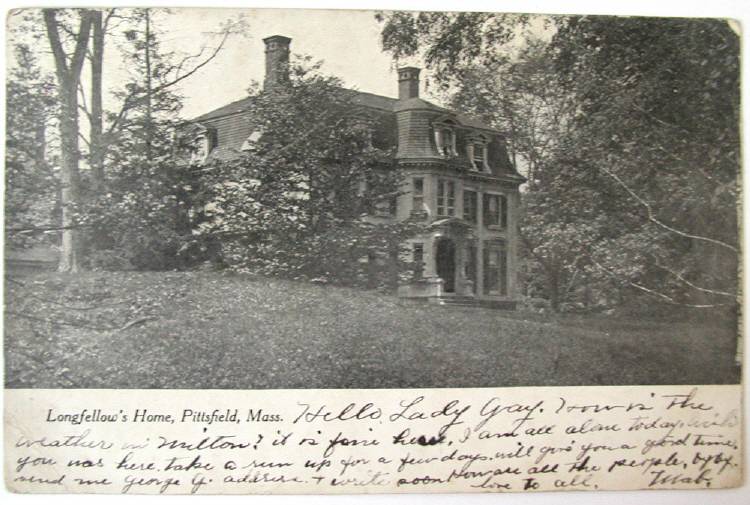 Longfellow's Home, Pittsfield, Mass. Hello Lady Gay. How is the
weather in Milton? it is fine here. I am all alone today. wish
you was here. take a run up for a few days. will give you a good time.
send me George G. address. + write soon. How are all the people, by by.
love to all. Mab.